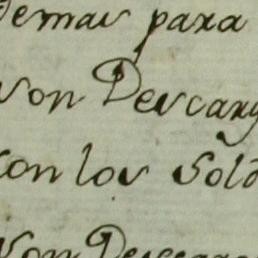 Demas para
son Descarg
con los Sold
son Descarg